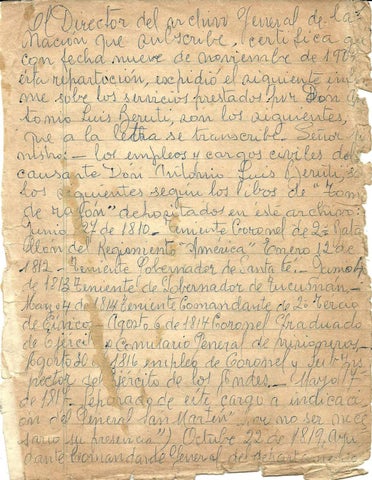 El Director del archivo General de la
Nacion que subscribe certifica que
con fecha nueve de noviembre de 190
esta reparticion, expidió el siguiente infor
me sobe los servicios prestados por Don An
tonio Luis Beruti, son los siguientes,
que a la letra se transcribe. Señor Mi
nistro: - los empleos y cargos civiles del
causante Don Antonio Luis Beruti, 
los siguientes segun los libos de "Tom
de razón" depositados en este archivo:
Junio 27 de 1810 - Teniente Coronel de 2º Bata
llon del Regimiento "America" Enero 12 de
1812 - Teniente Gobernador de Santa fé. Junio 4
de 1813 Teniente de Gobernador de Tucuman -
Mayo 4 de 1814 Teniente Comandante de 2º Tercio
de Civicos - Agosto 6 de 1814 Coronel Graduado
de Ejercito y Comisario General de 
Agosto 30 de 1816 empleo de Coronel y Sub Ins
pector del Ejército de los Andes. - Mayo 17
de 1817 Separado de este cargo a indicacion
del General San Martin "por no ser nece
sario su presencia") Octubre 22 de 1819. Ayu
dante Comandante General de departamento